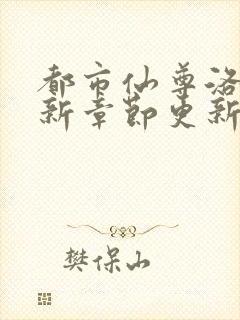 都市仙尊洛
新章节更新
樊保山